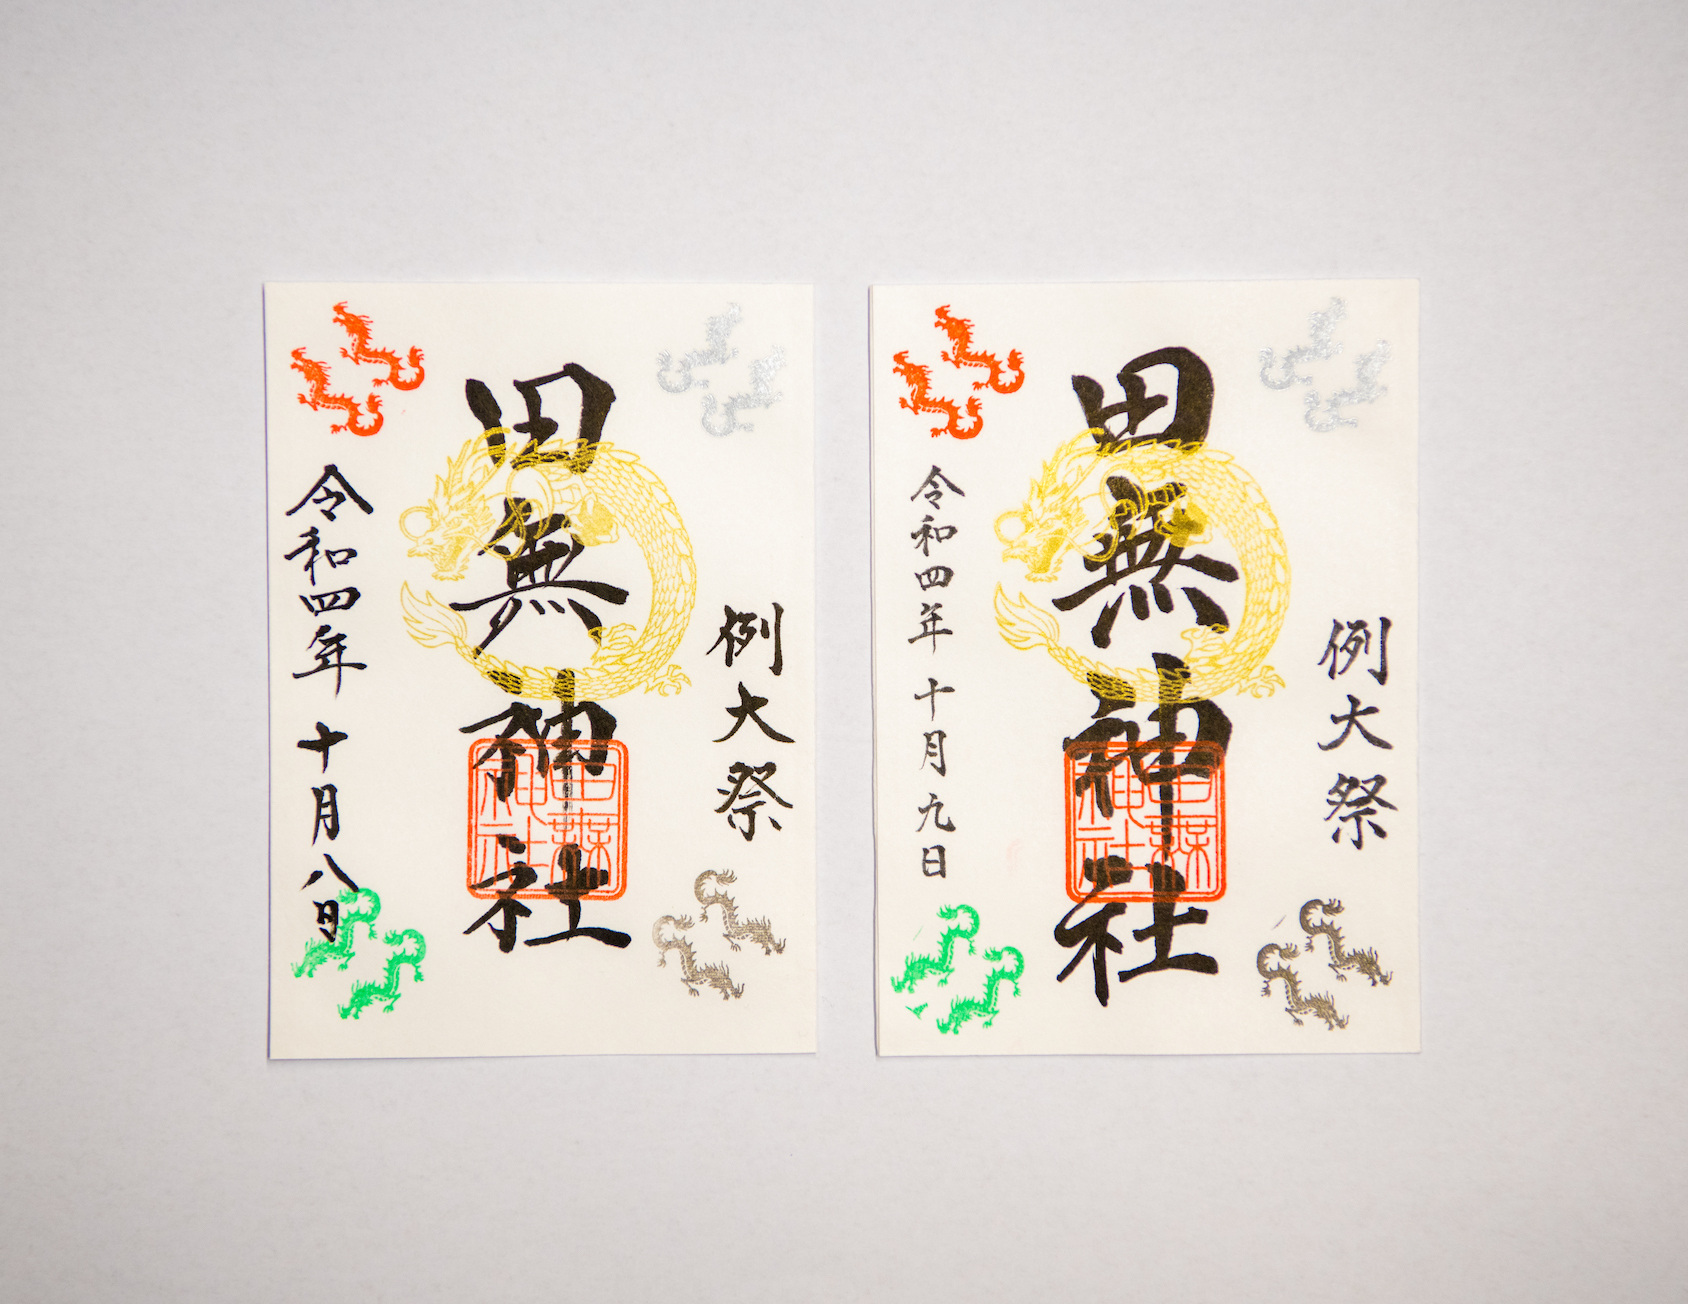 例大祭
田無神社
田無神社
令和四年 十月八日
例大祭
田無神社
田無神社
令和四年 十月九日